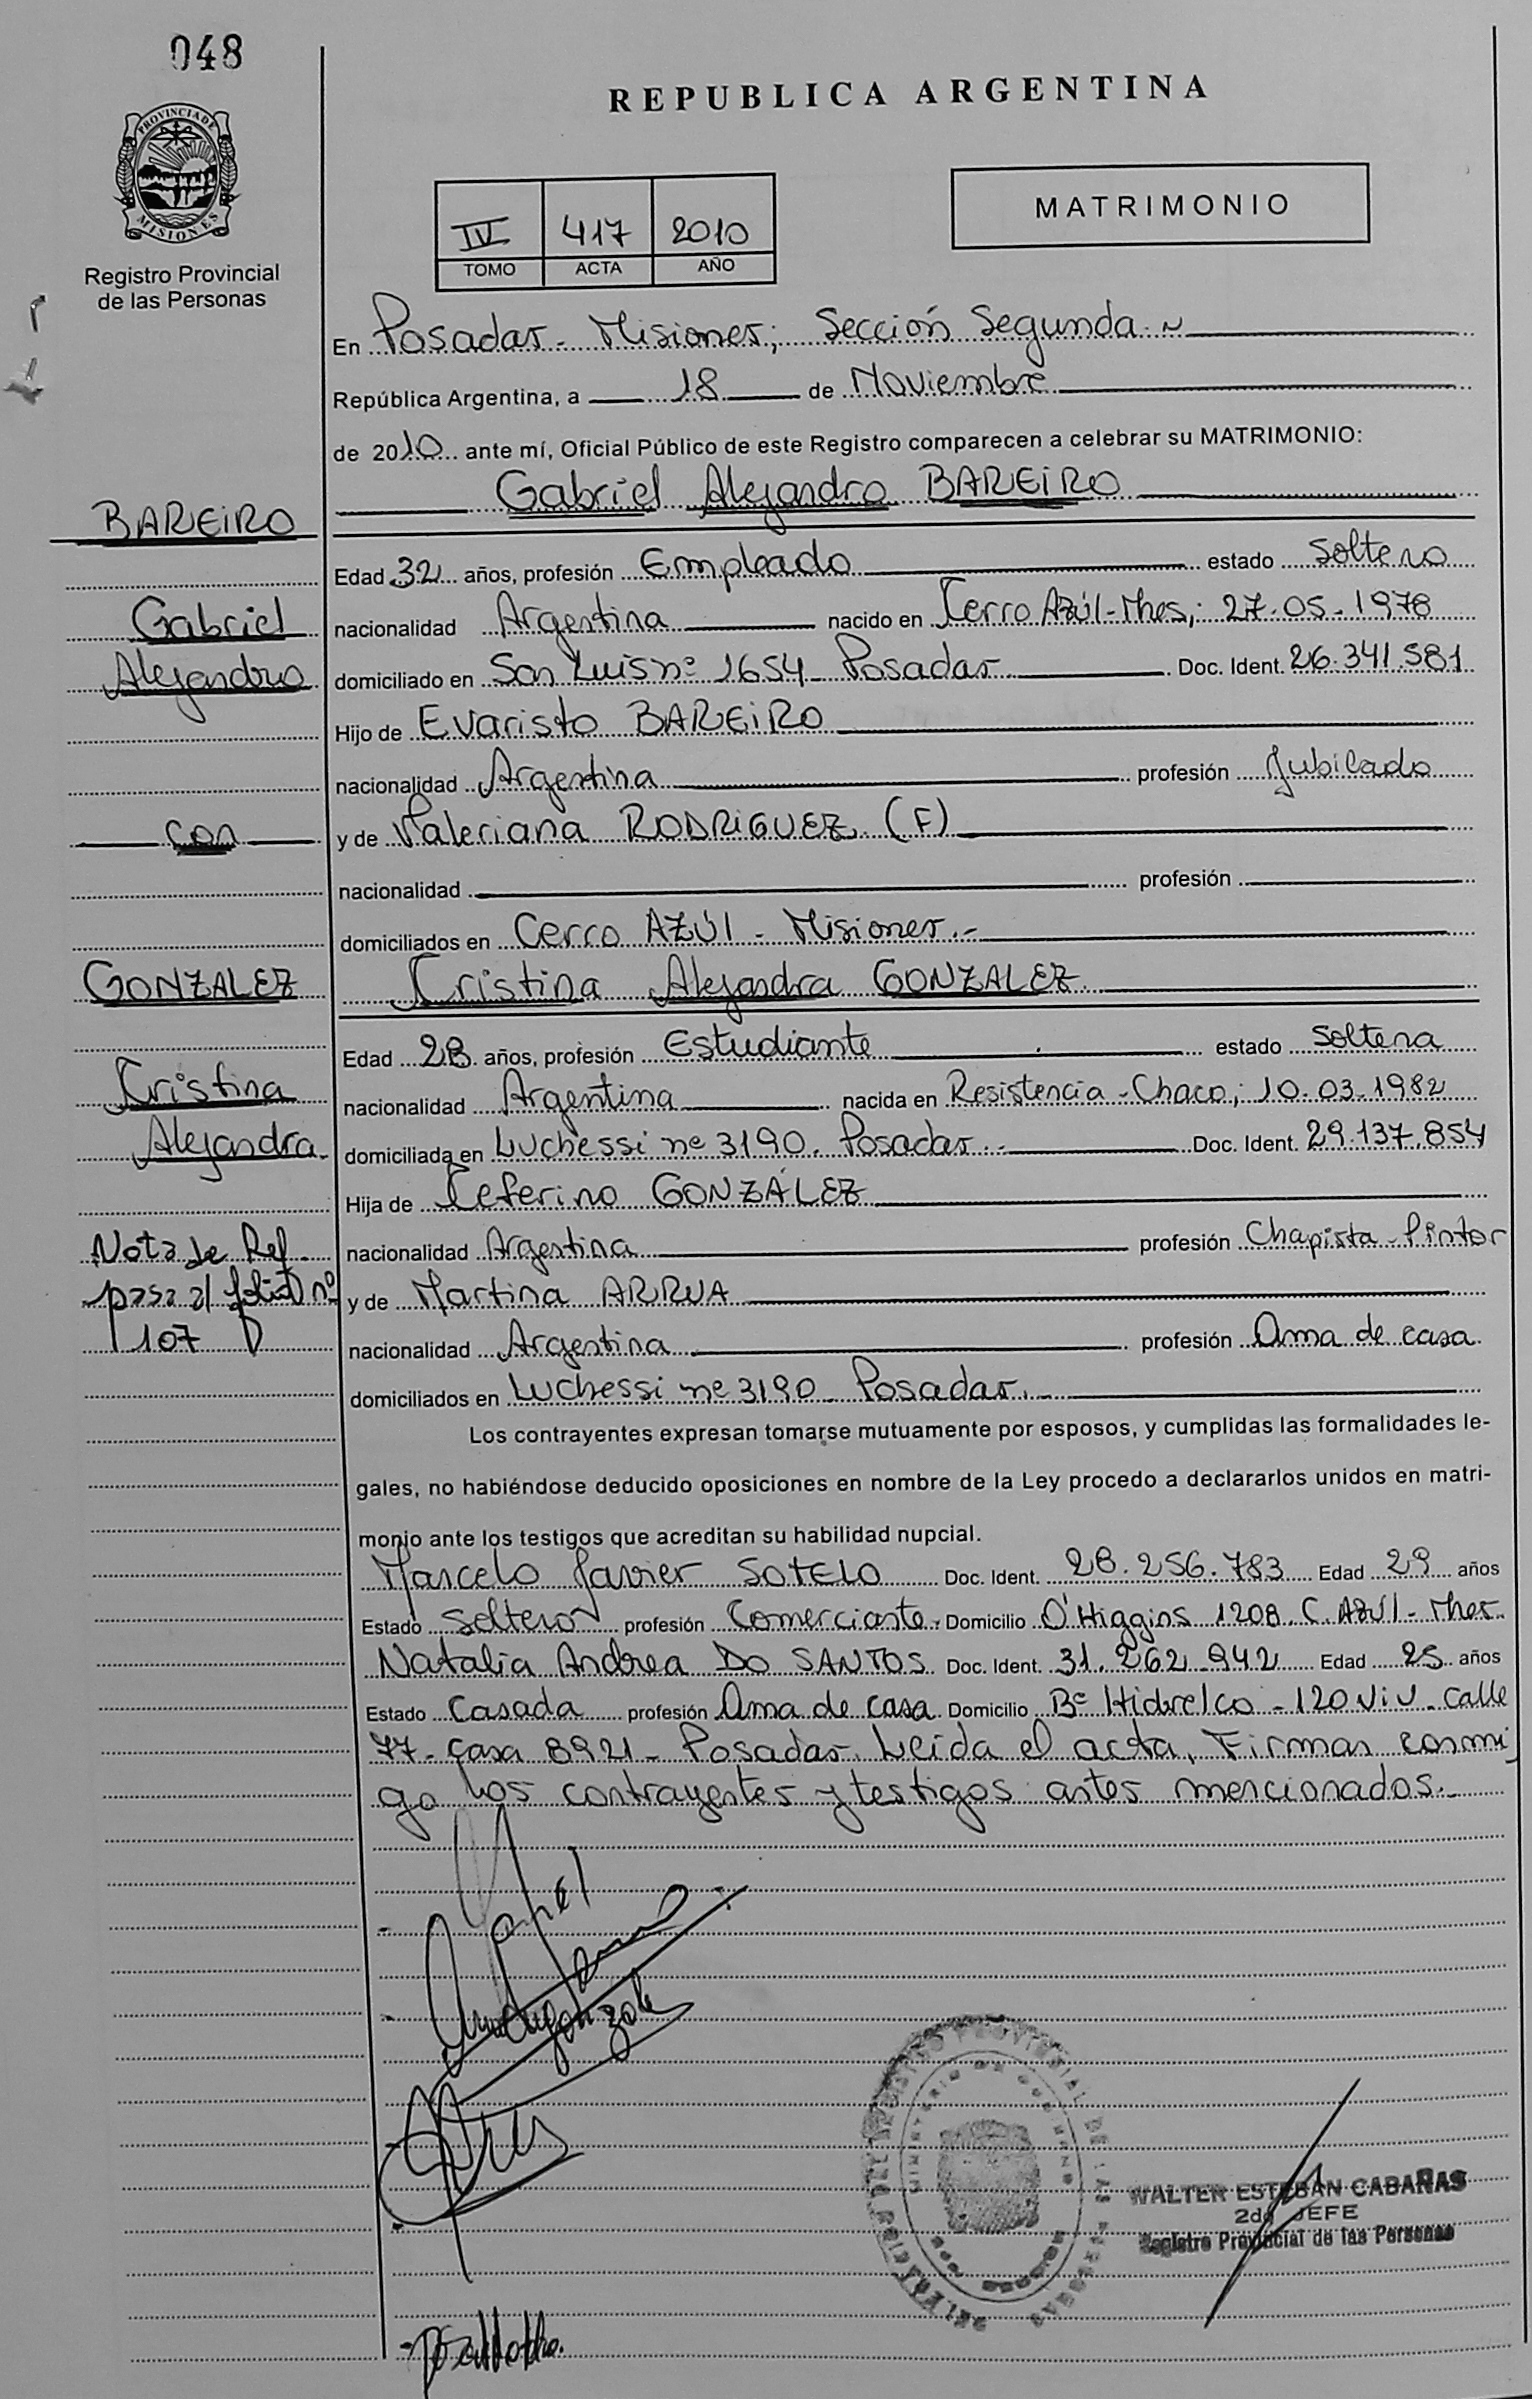 048
REPUBLICA ARGENTINA
PROVINCIA DE
MISIONES
Registro Provincial
de las Personas
IV 417 2010
TOMO ACTA AÑO
MATRIMONIO
En Posadas - Misiones; Sección Segunda
República Argentina, a 18 de Noviembre
de 2010 ante mí, Oficial Público de este Registro comparecen a celebrar su MATRIMONIO:
Gabriel Alejandro BAREIRO
BAREIRO
Edad 32 años, profesión Empleado estado Soltero
Gabriel
nacionalidad Argentina nacido en Cerro Azúl-Mnes; 27.05.1978
Alejandro
domiciliado en San Luis nº 1654 Posadas. Doc. Ident. 26.341.581
Hijo de Evaristo BAREIRO
nacionalidad Argentina profesión Jubilado
con
y de Valeriana RODRIGUEZ (F)
nacionalidad profesión
domiciliados en Cerro AZÚl - Misiones.-
GONZALEZ
Cristina Alejandra GONZALEZ
Edad 28 años, profesión Estudiante estado Soltera
Cristina
nacionalidad Argentina nacida en Resistencia - Chaco; 10.03.1982
Alejandra
domiciliada en Luchessi nº 3190. Posadas.- Doc. Ident. 29.137.854
Hija de Ceferino GONZÁLEZ
Nota de Ref.
nacionalidad Argentina profesión Chapista - Pintor
pasa al folio nº
y de Martina ARRUA
107
nacionalidad Argentina profesión Ama de casa
domiciliados en Luchessi nº 3190 Posadas.-
Los contrayentes expresan tomarse mutuamente por esposos, y cumplidas las formalidades le-
gales, no habiéndose deducido oposiciones en nombre de la Ley procedo a declararlos unidos en matri-
monio ante los testigos que acreditan su habilidad nupcial.
Marcelo Javier SOTELO Doc. Ident. 28.256.783 Edad 29 años
Estado Soltero profesión Comerciante Domicilio O'Higgins 1208 C. AZÚl - Mnes.
Natalia Andrea DO SANTOS Doc. Ident. 31.262.942 Edad 25 años
Estado Casada profesión Ama de casa Domicilio Bº Hidrelco - 120 viv - Calle
77 - Casa 8921 - Posadas. Leída el acta, Firman conmi
go los contrayentes y testigos antes mencionados.-
WALTER ESTEBAN CABAÑAS
2do JEFE
Registro Provincial de las Personas